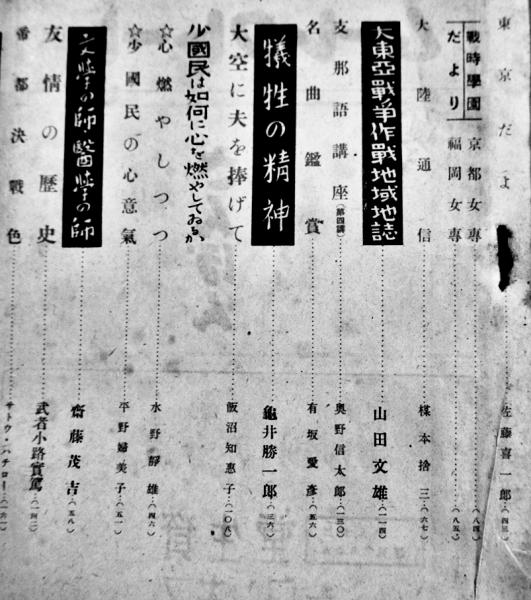 東京だより……佐藤喜一郎…(四三)
戰時學園だより
京都女專……(八四)
福岡女專……(八五)
大陸通信……楳本捨三…(六七)
大東亞戰爭作戰地域地誌……山田文雄…(一一四)
支那語講座(第四講)……奥野信太郎…(一三〇)
名曲鑑賞……有坂愛彦…(五六)
犠牲の精神……龜井勝一郎…(三六)
大空に夫を捧げて……飯沼知惠子…(一〇八)
少國民は如何に心を燃やしてゐるか
☆心燃やしつつ……水野靜雄…(四六)
☆少國民の心意氣……平野婦美子…(五一)
文學の師醫學の師……齋藤茂吉…(五八)
友情の歷史……武者小路實篤…(一四二)
帝都決戰色……サトウ・ハチロー…(一六一)